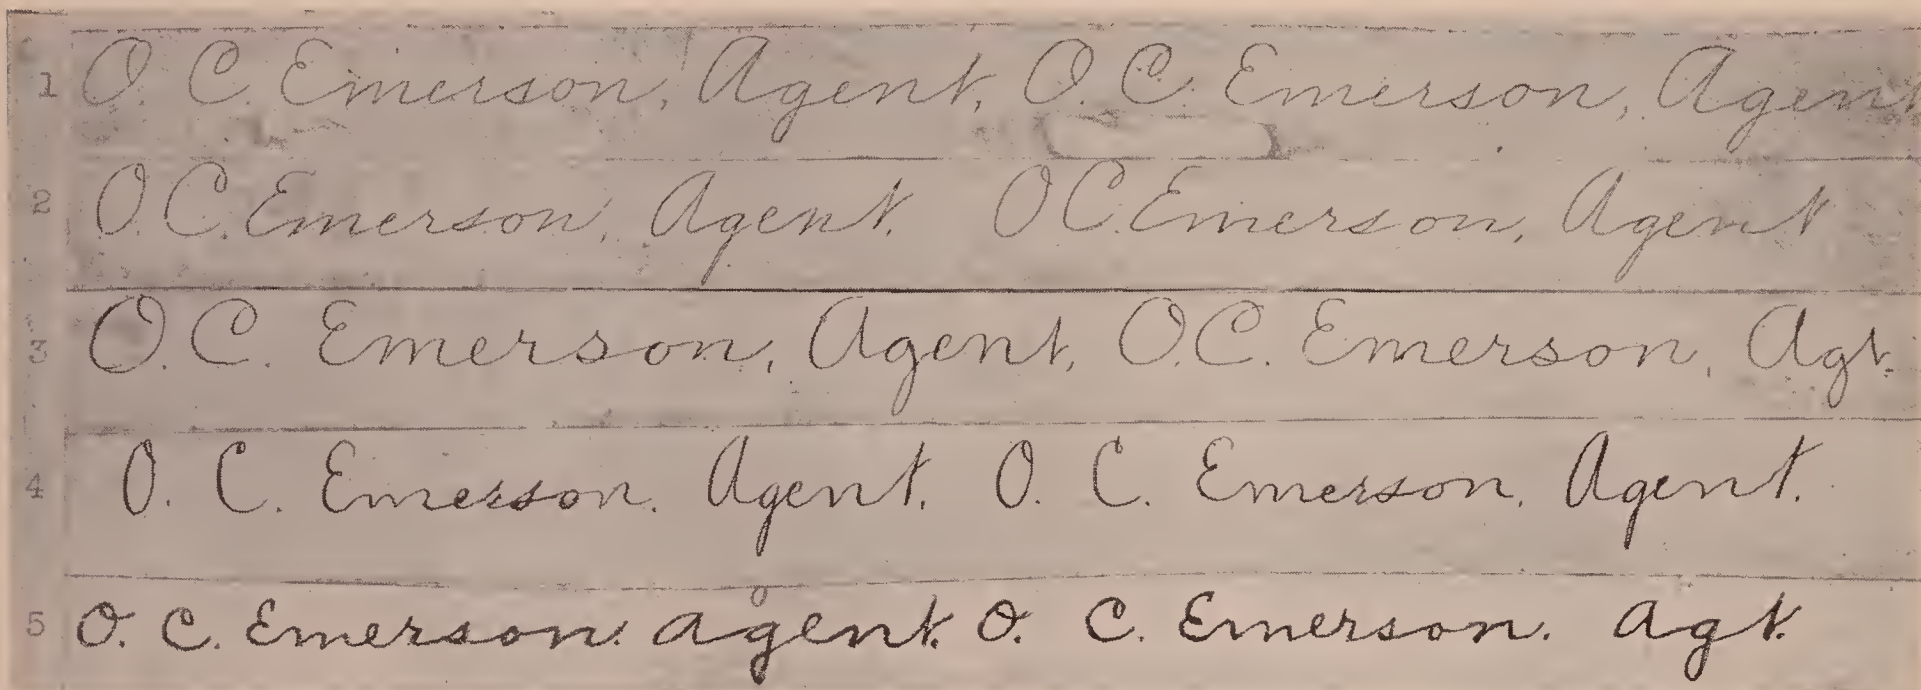 1 O. C. Emerson, Agent, O. C. Emerson, Agent
2 O. C. Emerson, Agent. O C. Emerson, Agent
3 O. C. Emerson, Agent, O. C. Emerson, Agt.
4 O. C. Emerson. Agent. O. C. Emerson. Agent.
5 O. C. Emerson. agent. O. C. Emerson. agt.